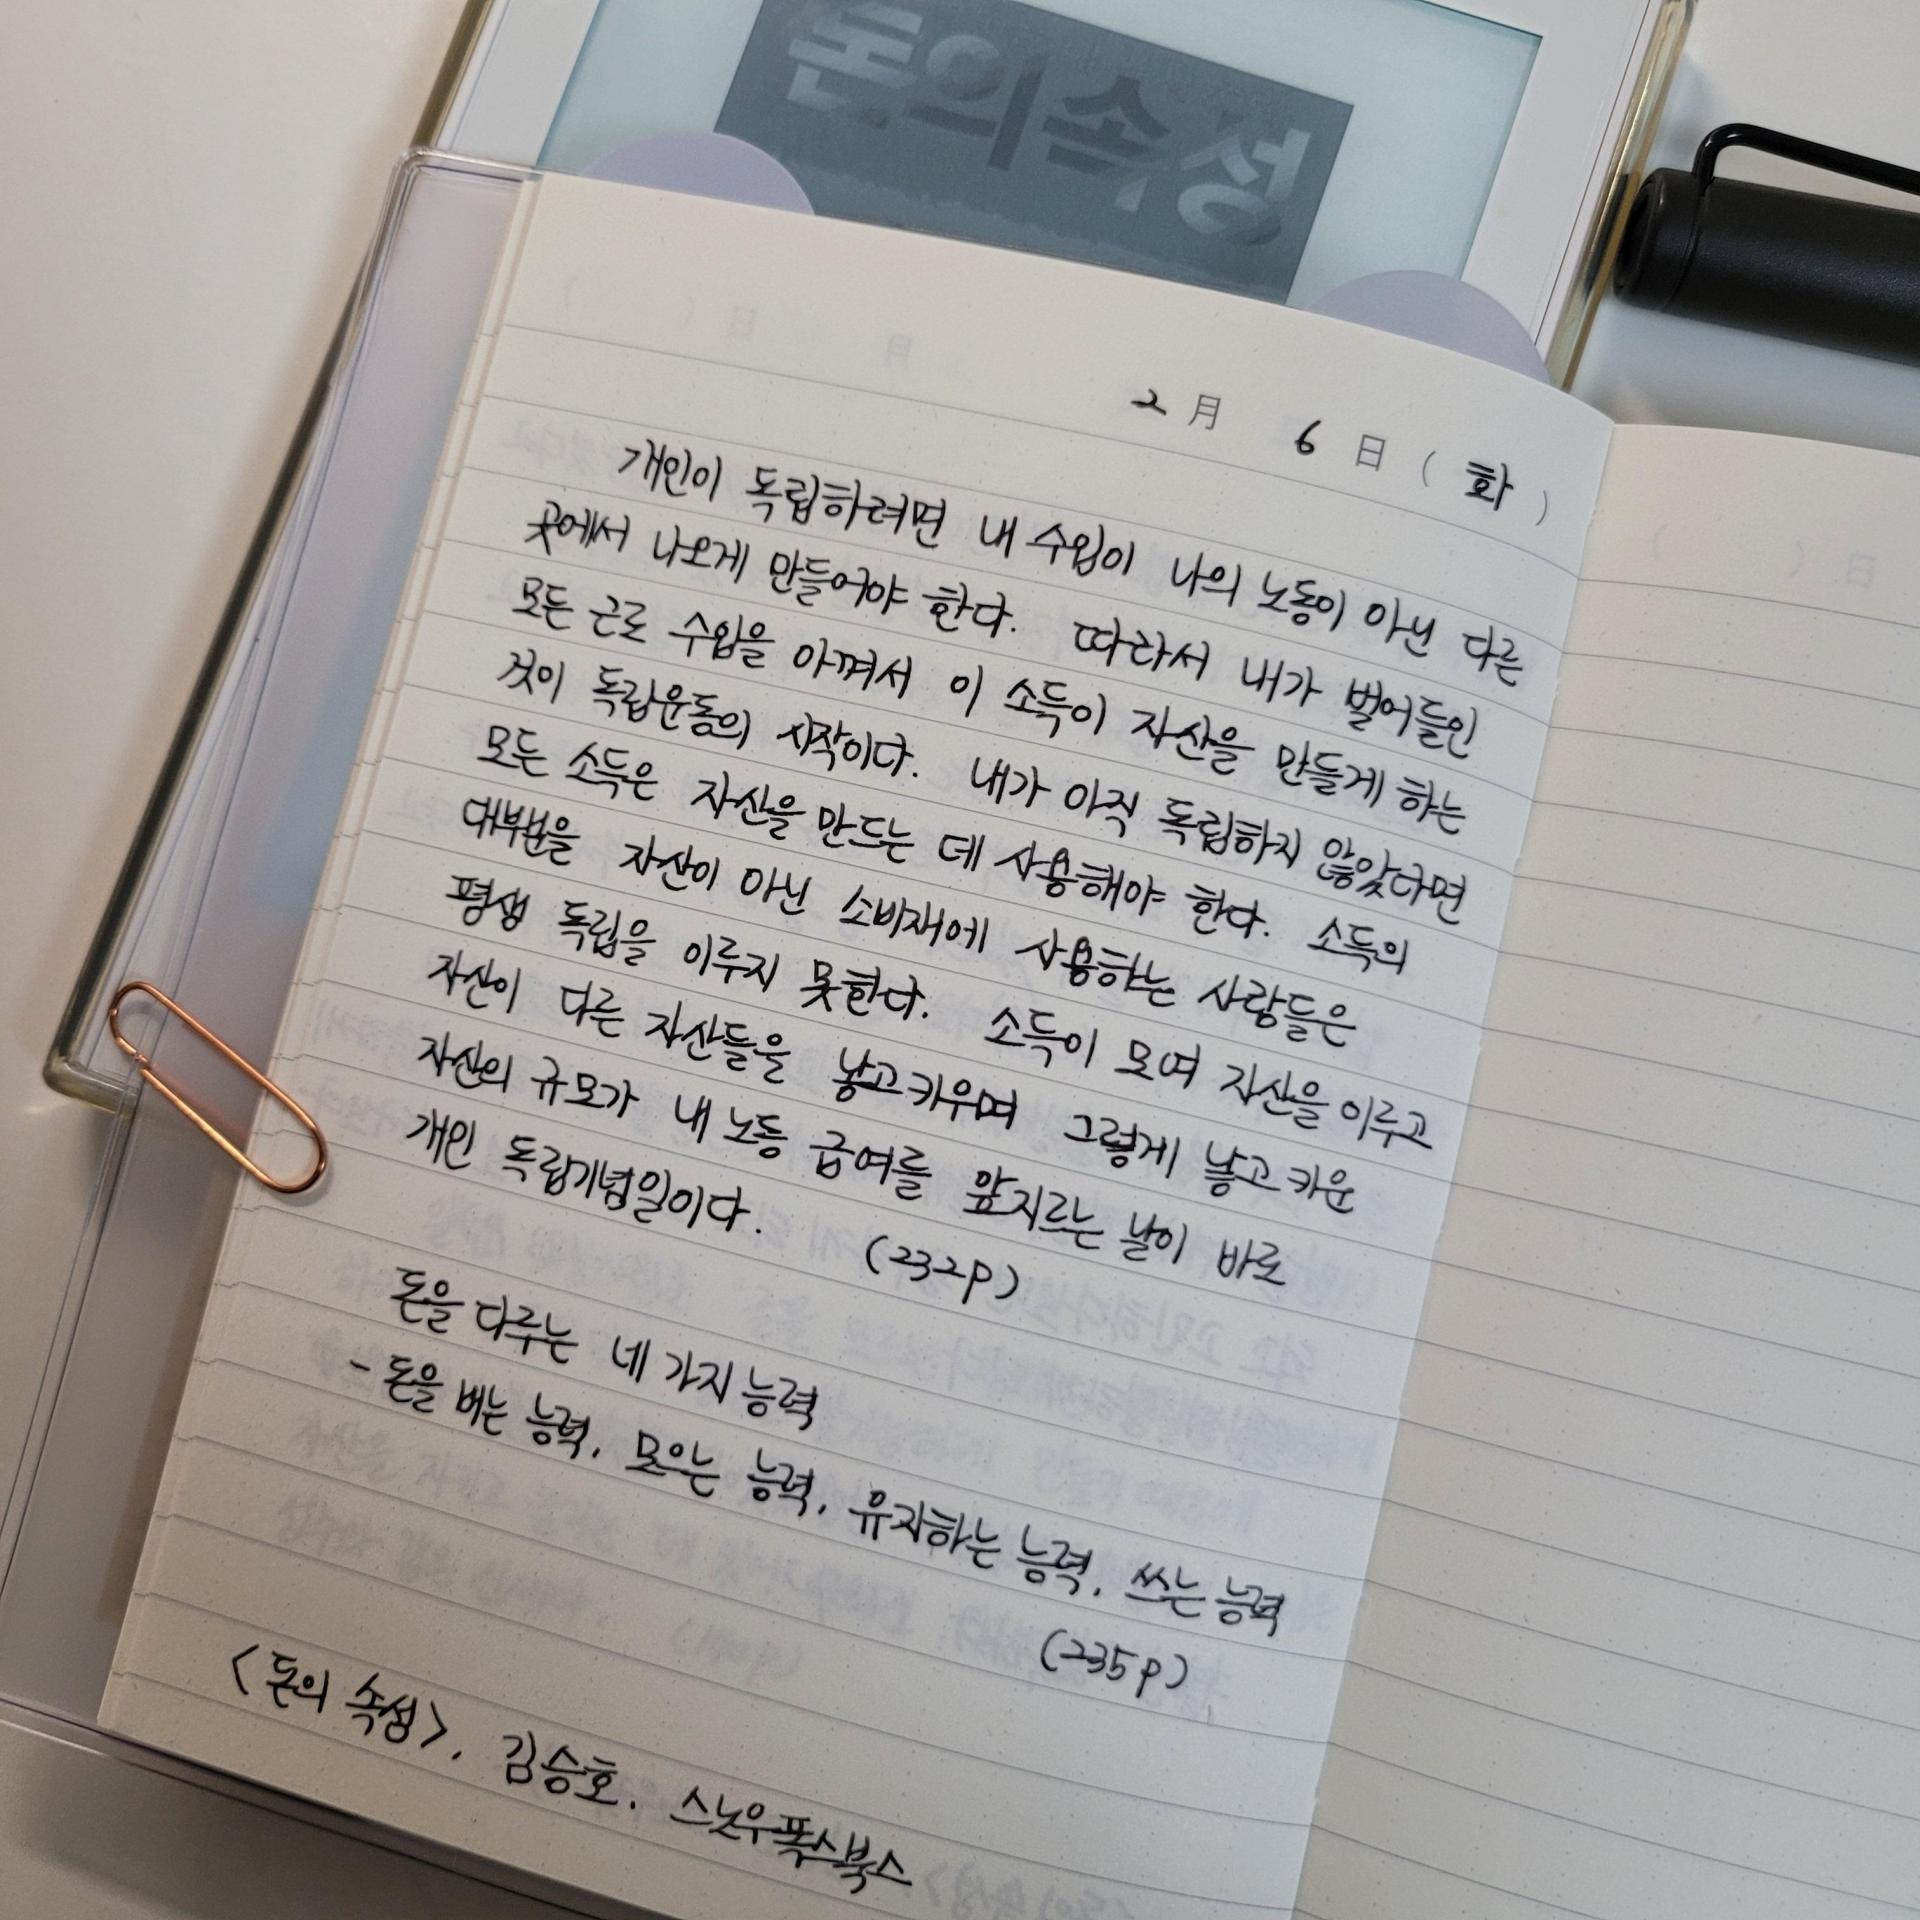 돈의 속성
2月 6日 (화)
개인이 독립하려면 내 수입이 나의 노동이 아닌 다른
곳에서 나오게 만들어야 한다. 따라서 내가 벌어들인
모든 근로 수입을 아껴서 이 소득이 자산을 만들게 하는
것이 독립운동의 시작이다. 내가 아직 독립하지 않았다면
모든 소득은 자산을 만드는 데 사용해야 한다. 소득의
대부분을 자산이 아닌 소비재에 사용하는 사람들은
평생 독립을 이루지 못한다. 소득이 모여 자산을 이루고
자산이 다른 자산들을 낳고 키우며 그렇게 낳고 키운
자산의 규모가 내 노동 급여를 앞지르는 날이 바로
개인 독립기념일이다. (232p)
돈을 다루는 네 가지 능력
- 돈을 버는 능력, 모으는 능력, 유지하는 능력, 쓰는 능력
(235p)
<돈의 속성>, 김승호, 스노우폭스북스